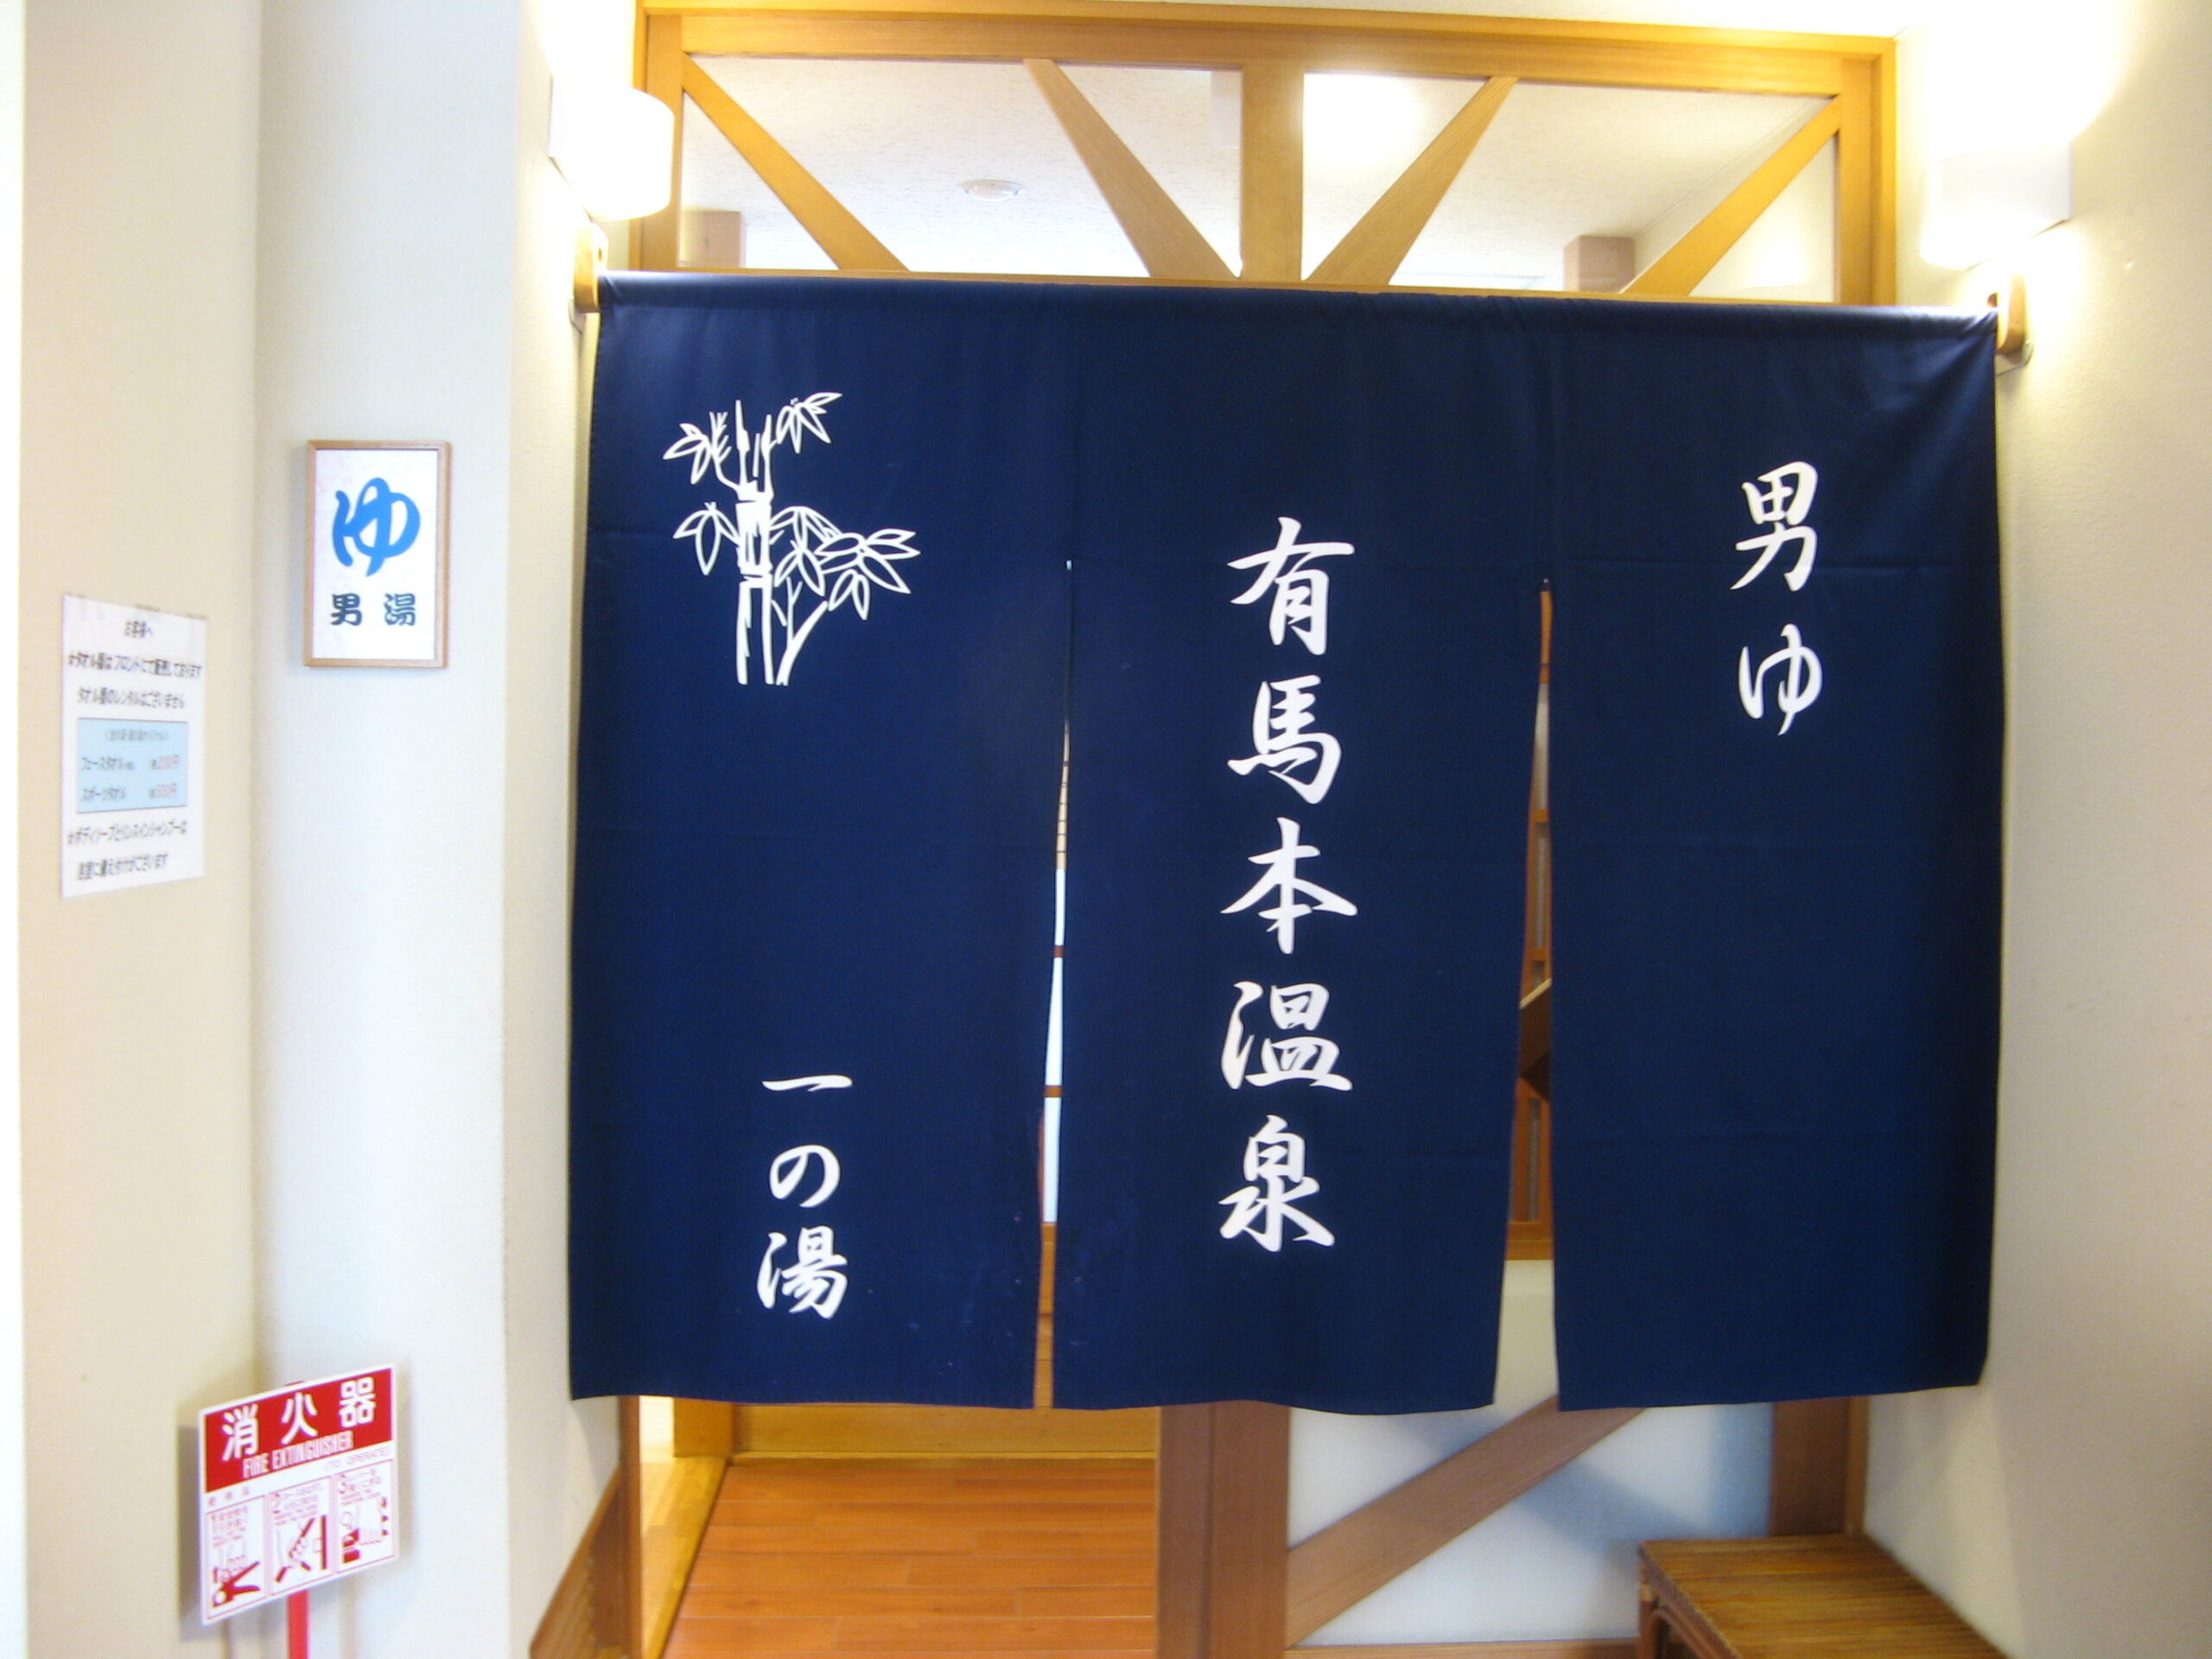 男ゆ
有馬本温泉
一の湯
ゆ
男湯
お客様へ
☆タオル類はフロントにて販売しております
タオル類のレンタルはございません
フェースタオル
スポーツタオル
☆ボディソープとリンスインシャンプーは
浴室に備え付けがございます
消火器
FIRE EXTINGUISHER